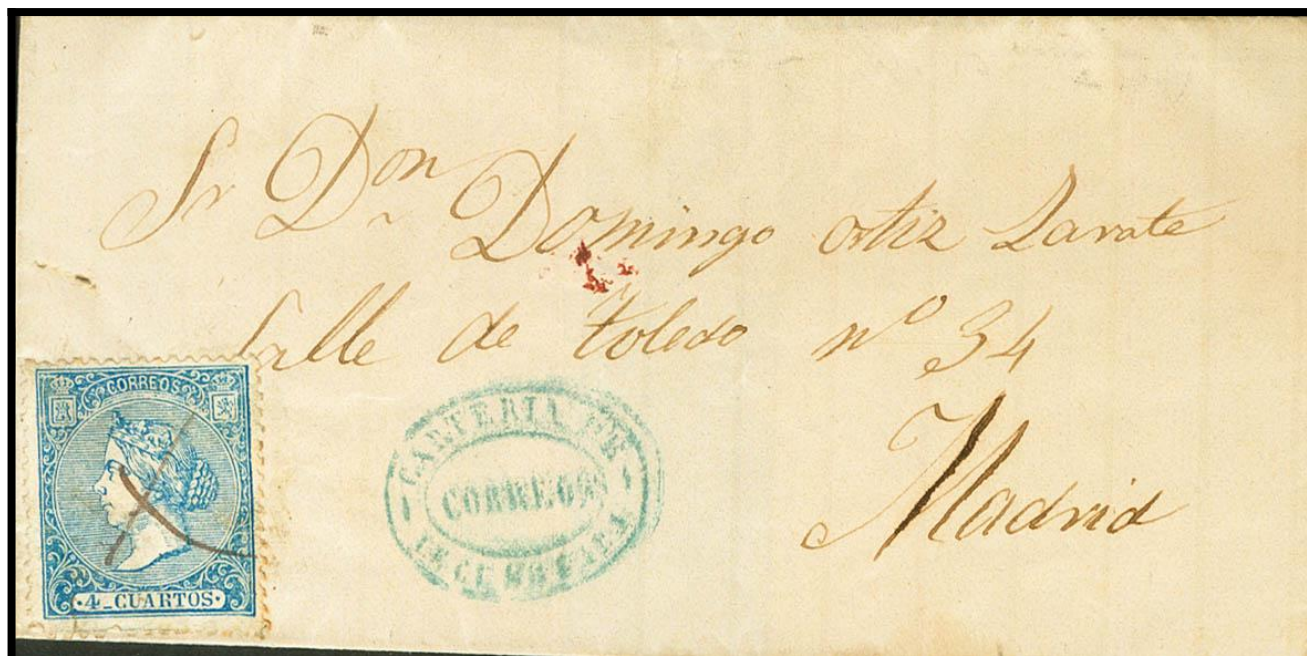 Sr Don Domingo ortiz Zarate
Calle de Toledo nº 34
Madrid
CORREOS
4_CUARTOS
CARTERIA DE
CORREOS